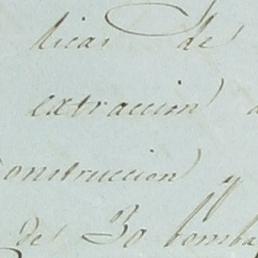 licas de
extraccion
onstruccion y
des 30 bomba